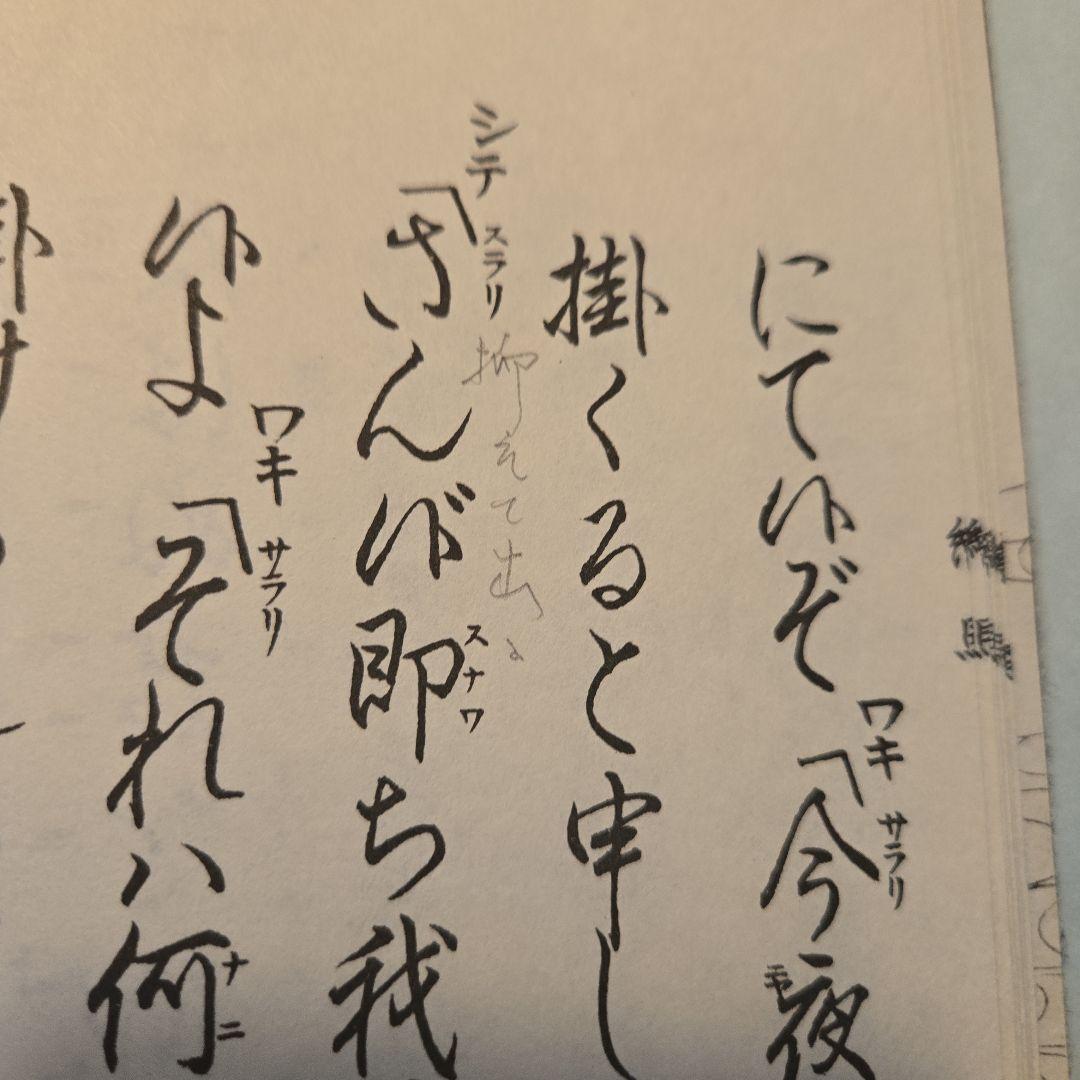 にて候ぞ ワキ サラリ 「今夜 モ
掛くると申し
シテ スラリ 「さん候即ち我 スナワ
抑えて出る
候よ ワキ サラリ 「それハ何 ナニ
掛け
絵馬